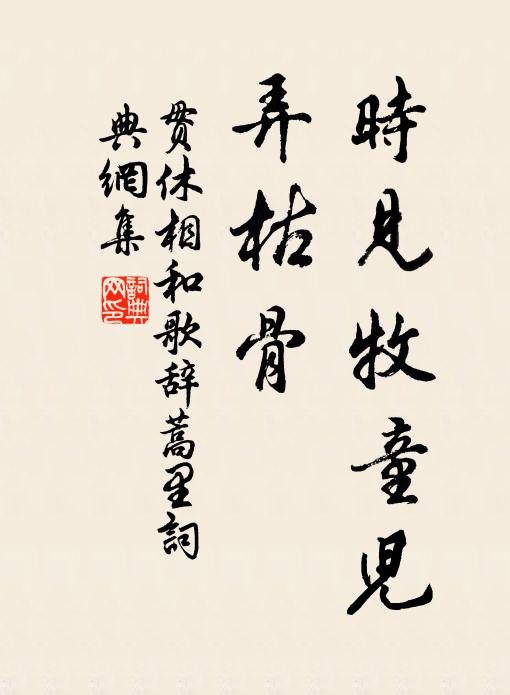 時見牧童児
弄枯骨
贯休相和歌辞蒿里詞
典網集
詞典
网印